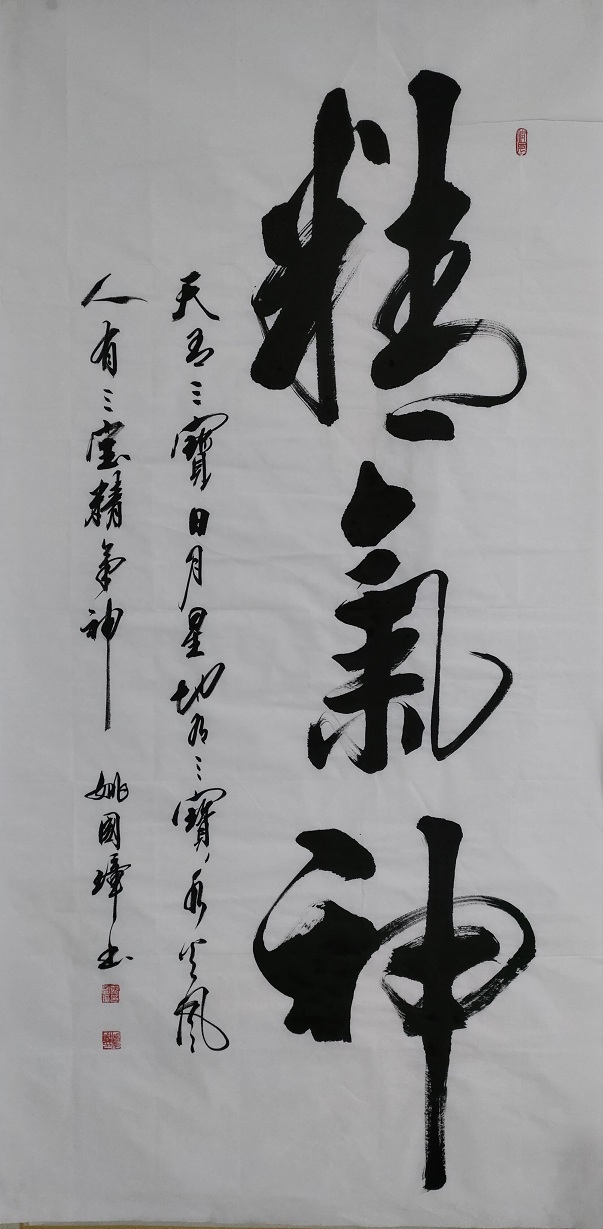 精氣神
天有三寶日月星地有三寶水火風
人有三宝精氣神
姚國璋书